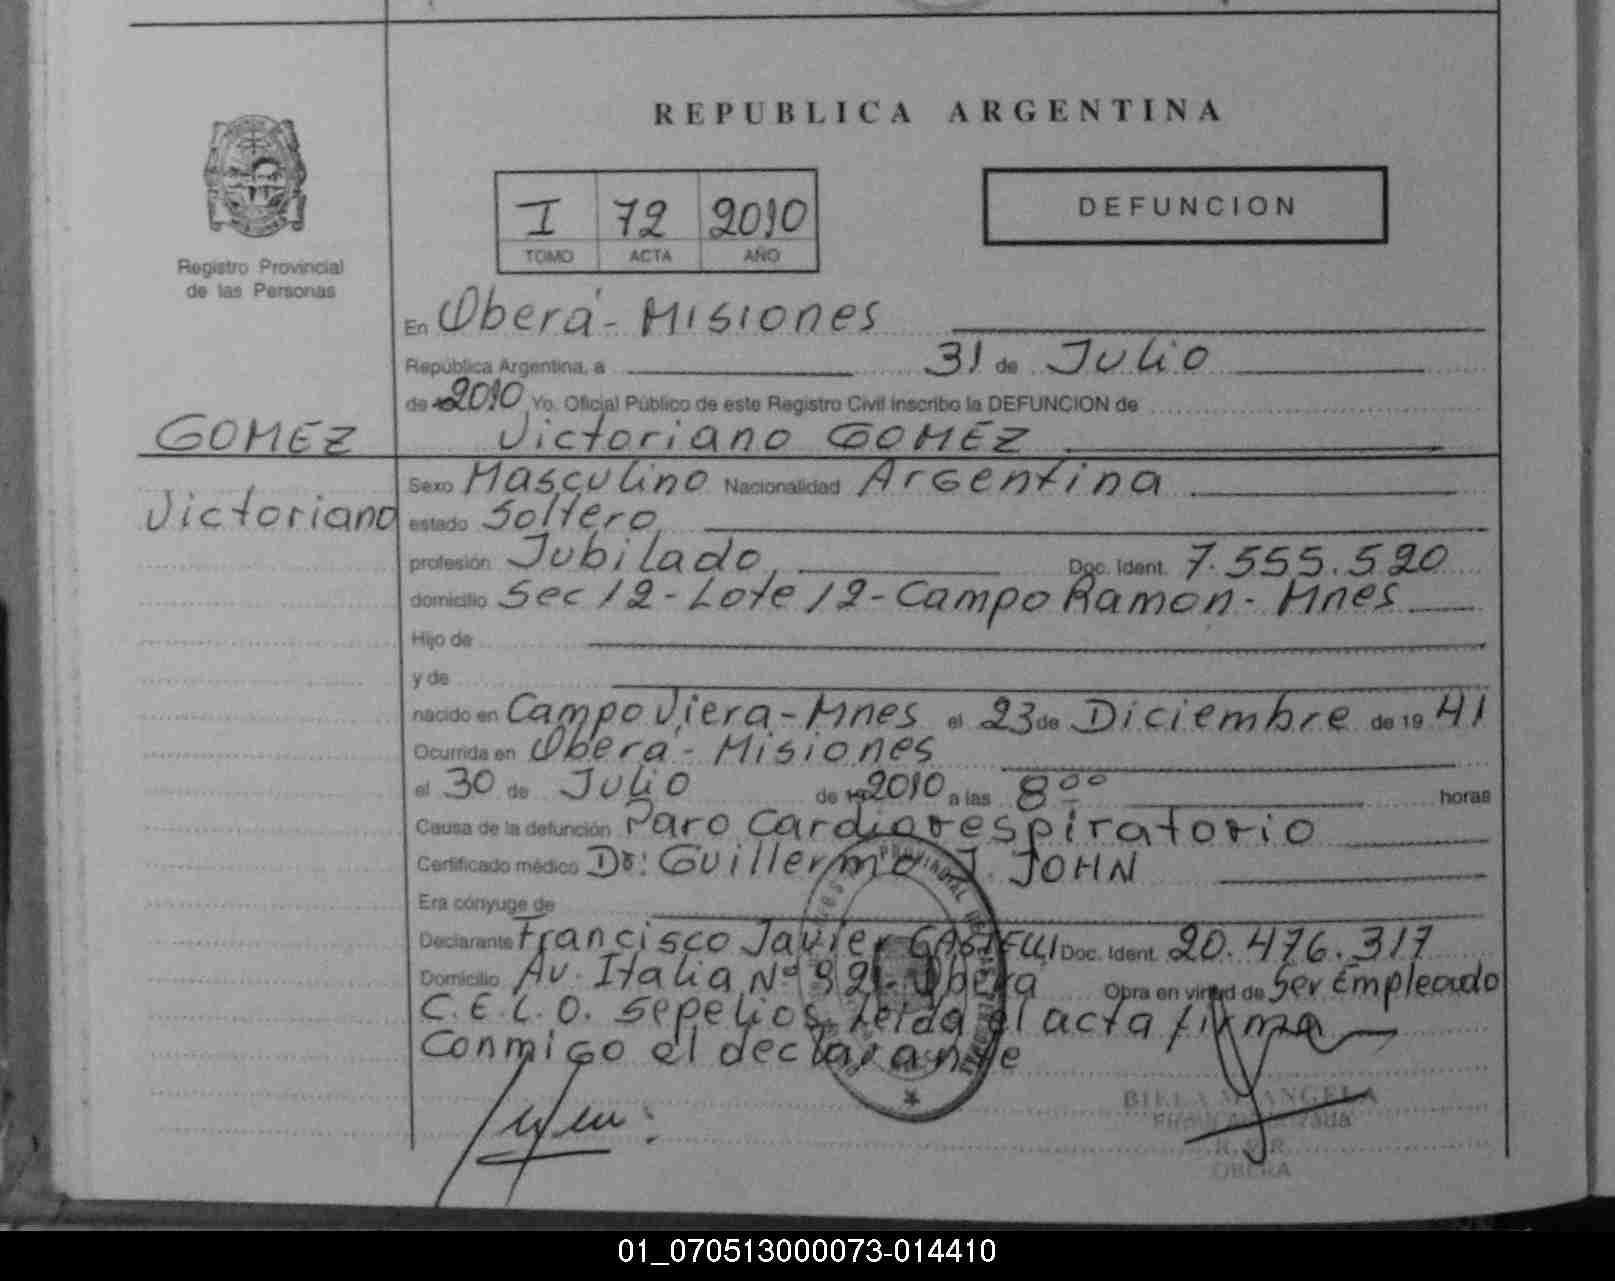 REPUBLICA ARGENTINA
Registro Provincial
de las Personas
I 72 2010
TOMO ACTA AÑO
DEFUNCION
En Oberá - Misiones
República Argentina, a 31 de Julio
de 2010 Yo, Oficial Público de este Registro Civil inscribo la DEFUNCION de
GOMEZ
Victoriano
Victoriano GOMEZ
Sexo Masculino Nacionalidad Argentina
estado Soltero
profesión Jubilado Doc. Ident. 7.555.520
domicilio Sec 12 - Lote 12 - Campo Ramon - Mnes
Hijo de
y de
nacido en Campo Viera - Mnes el 23 de Diciembre de 19 41
Ocurrida en Oberá - Misiones
el 30 de Julio de 2010 a las 8 00 horas
Causa de la defunción Paro Cardiorespiratorio
Certificado médico Dr: Guillermo J. JOHN
Era cónyuge de
Declarante Francisco Javier CASTELLI Doc. Ident. 20.476.317
Domicilio Av. Italia Nº Oberá Obra en virtud de Ser Empleado
C.E.L.O. Sepelios. Leida el acta firma
Conmigo el declarante
OBERA
01_070513000073-014410